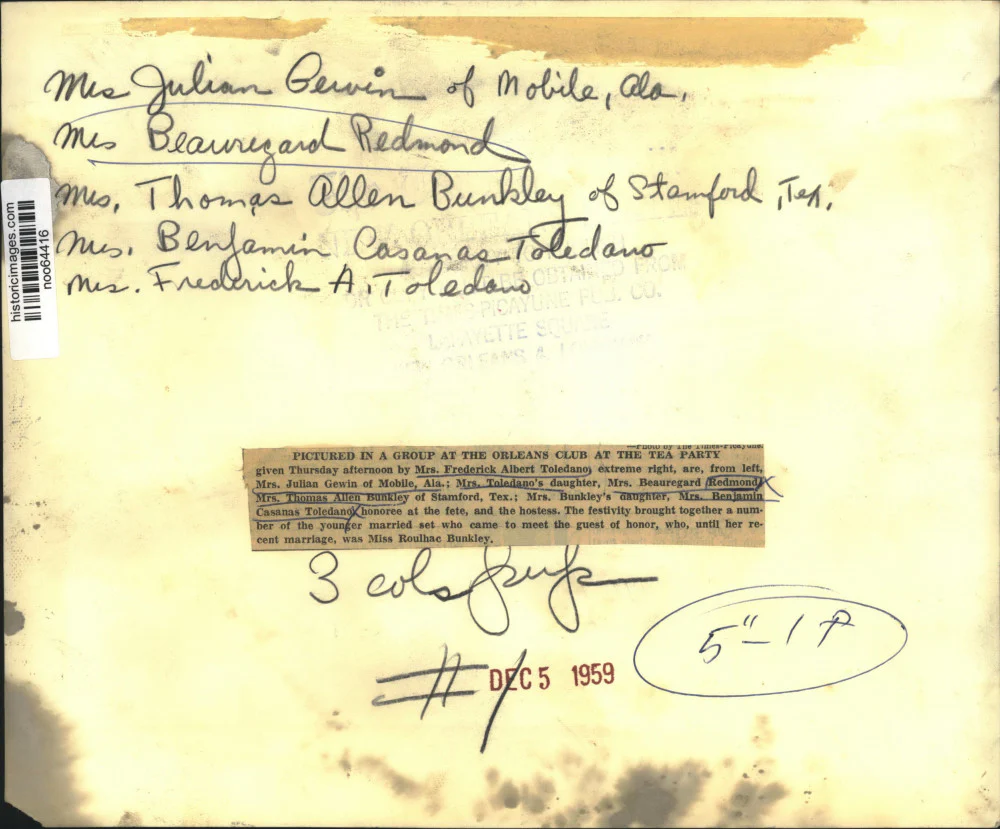 Mrs Julian Gewin of Mobile, Ala.
Mrs Beauregard Redmond
Mrs. Thomas Allen Bunkley of Stamford, Tex.
Mrs. Benjamin Casanas Toledano
Mrs. Frederick A. Toledano
historicimages.com
noo64416
OBTAINED FROM
THE TIMES-PICAYUNE PUB. CO.
LAFAYETTE SQUARE
NEW ORLEANS
—Photo by The Times-Picayune.
PICTURED IN A GROUP AT THE ORLEANS CLUB AT THE TEA PARTY
given Thursday afternoon by Mrs. Frederick Albert Toledano, extreme right, are, from left,
Mrs. Julian Gewin of Mobile, Ala.; Mrs. Toledano's daughter, Mrs. Beauregard Redmond;
Mrs. Thomas Allen Bunkley of Stamford, Tex.; Mrs. Bunkley's daughter, Mrs. Benjamin
Casanas Toledano, honoree at the fete, and the hostess. The festivity brought together a num-
ber of the younger married set who came to meet the guest of honor, who, until her re-
cent marriage, was Miss Roulhac Bunkley.
3 cols
5" - 1 P
# 1 DEC 5 1959